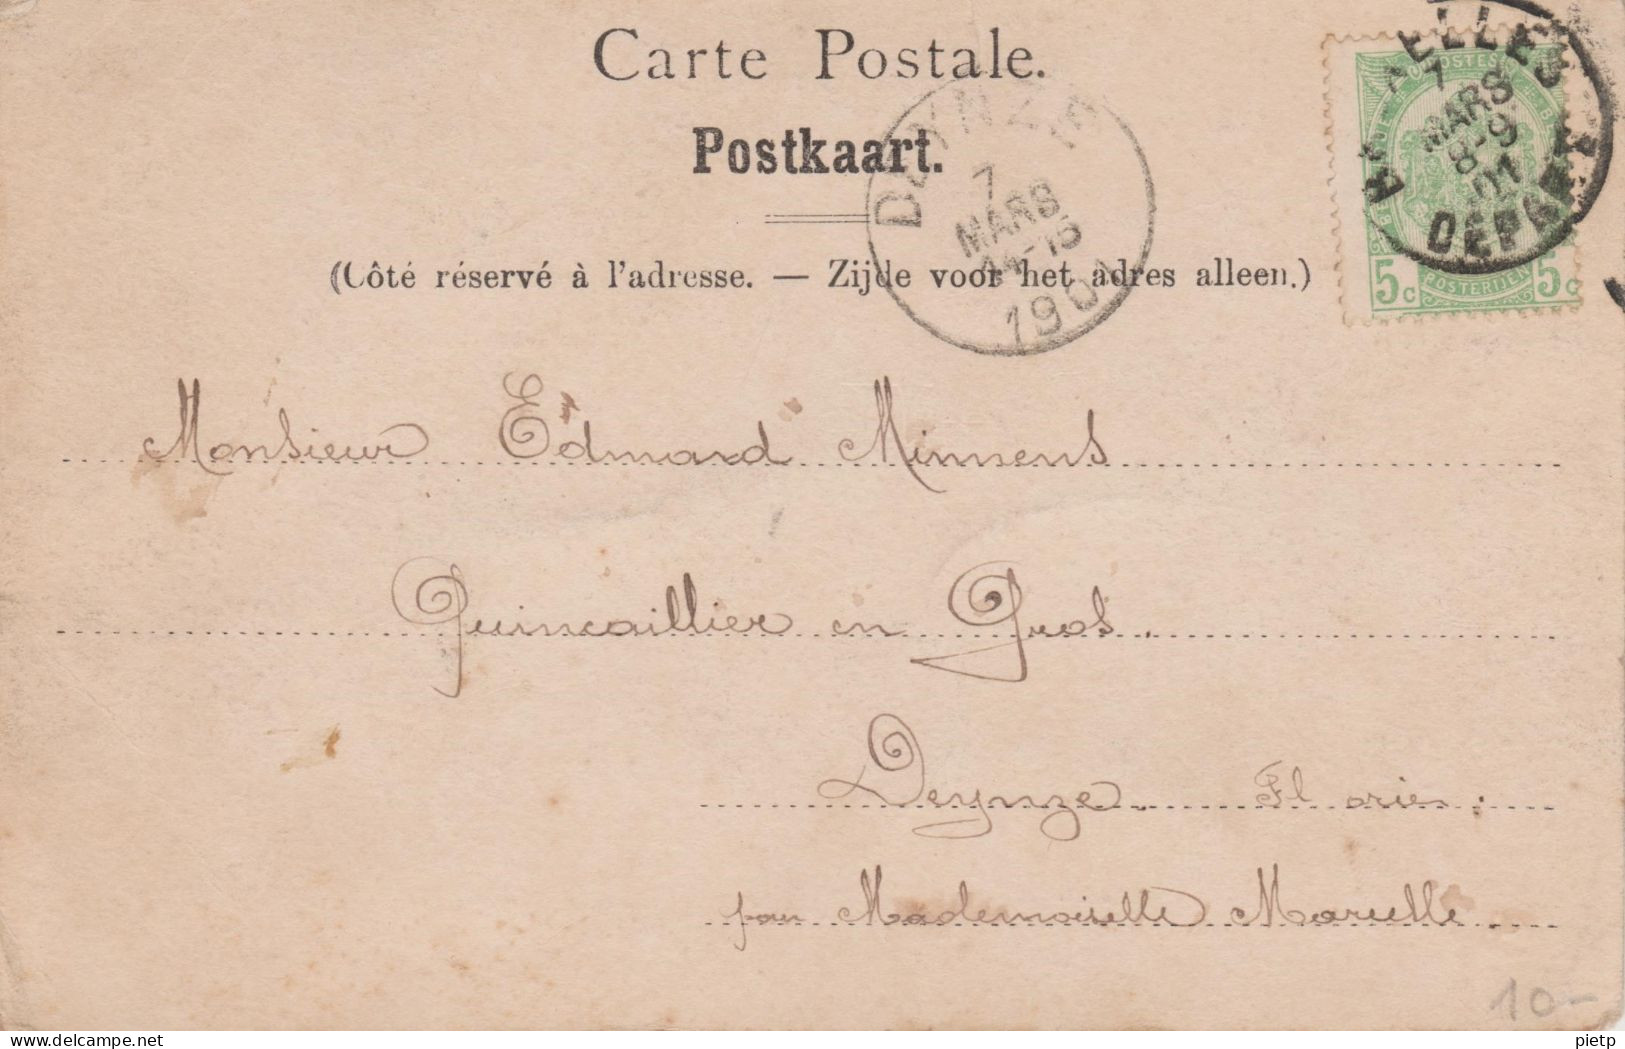 Carte Postale.
Postkaart.
(Côté réservé à l'adresse. — Zijde voor het adres alleen.)
DEYNZE
7
MARS
14-15
1901
7
MARS
8-9
01
DEPART
POSTERIJEN
5c 5c
Monsieur Edmard Minnens
Quincaillier en Gros.
Deynze. Fl orien:
pour Mademoiselle Marcelle.
10-
pietp